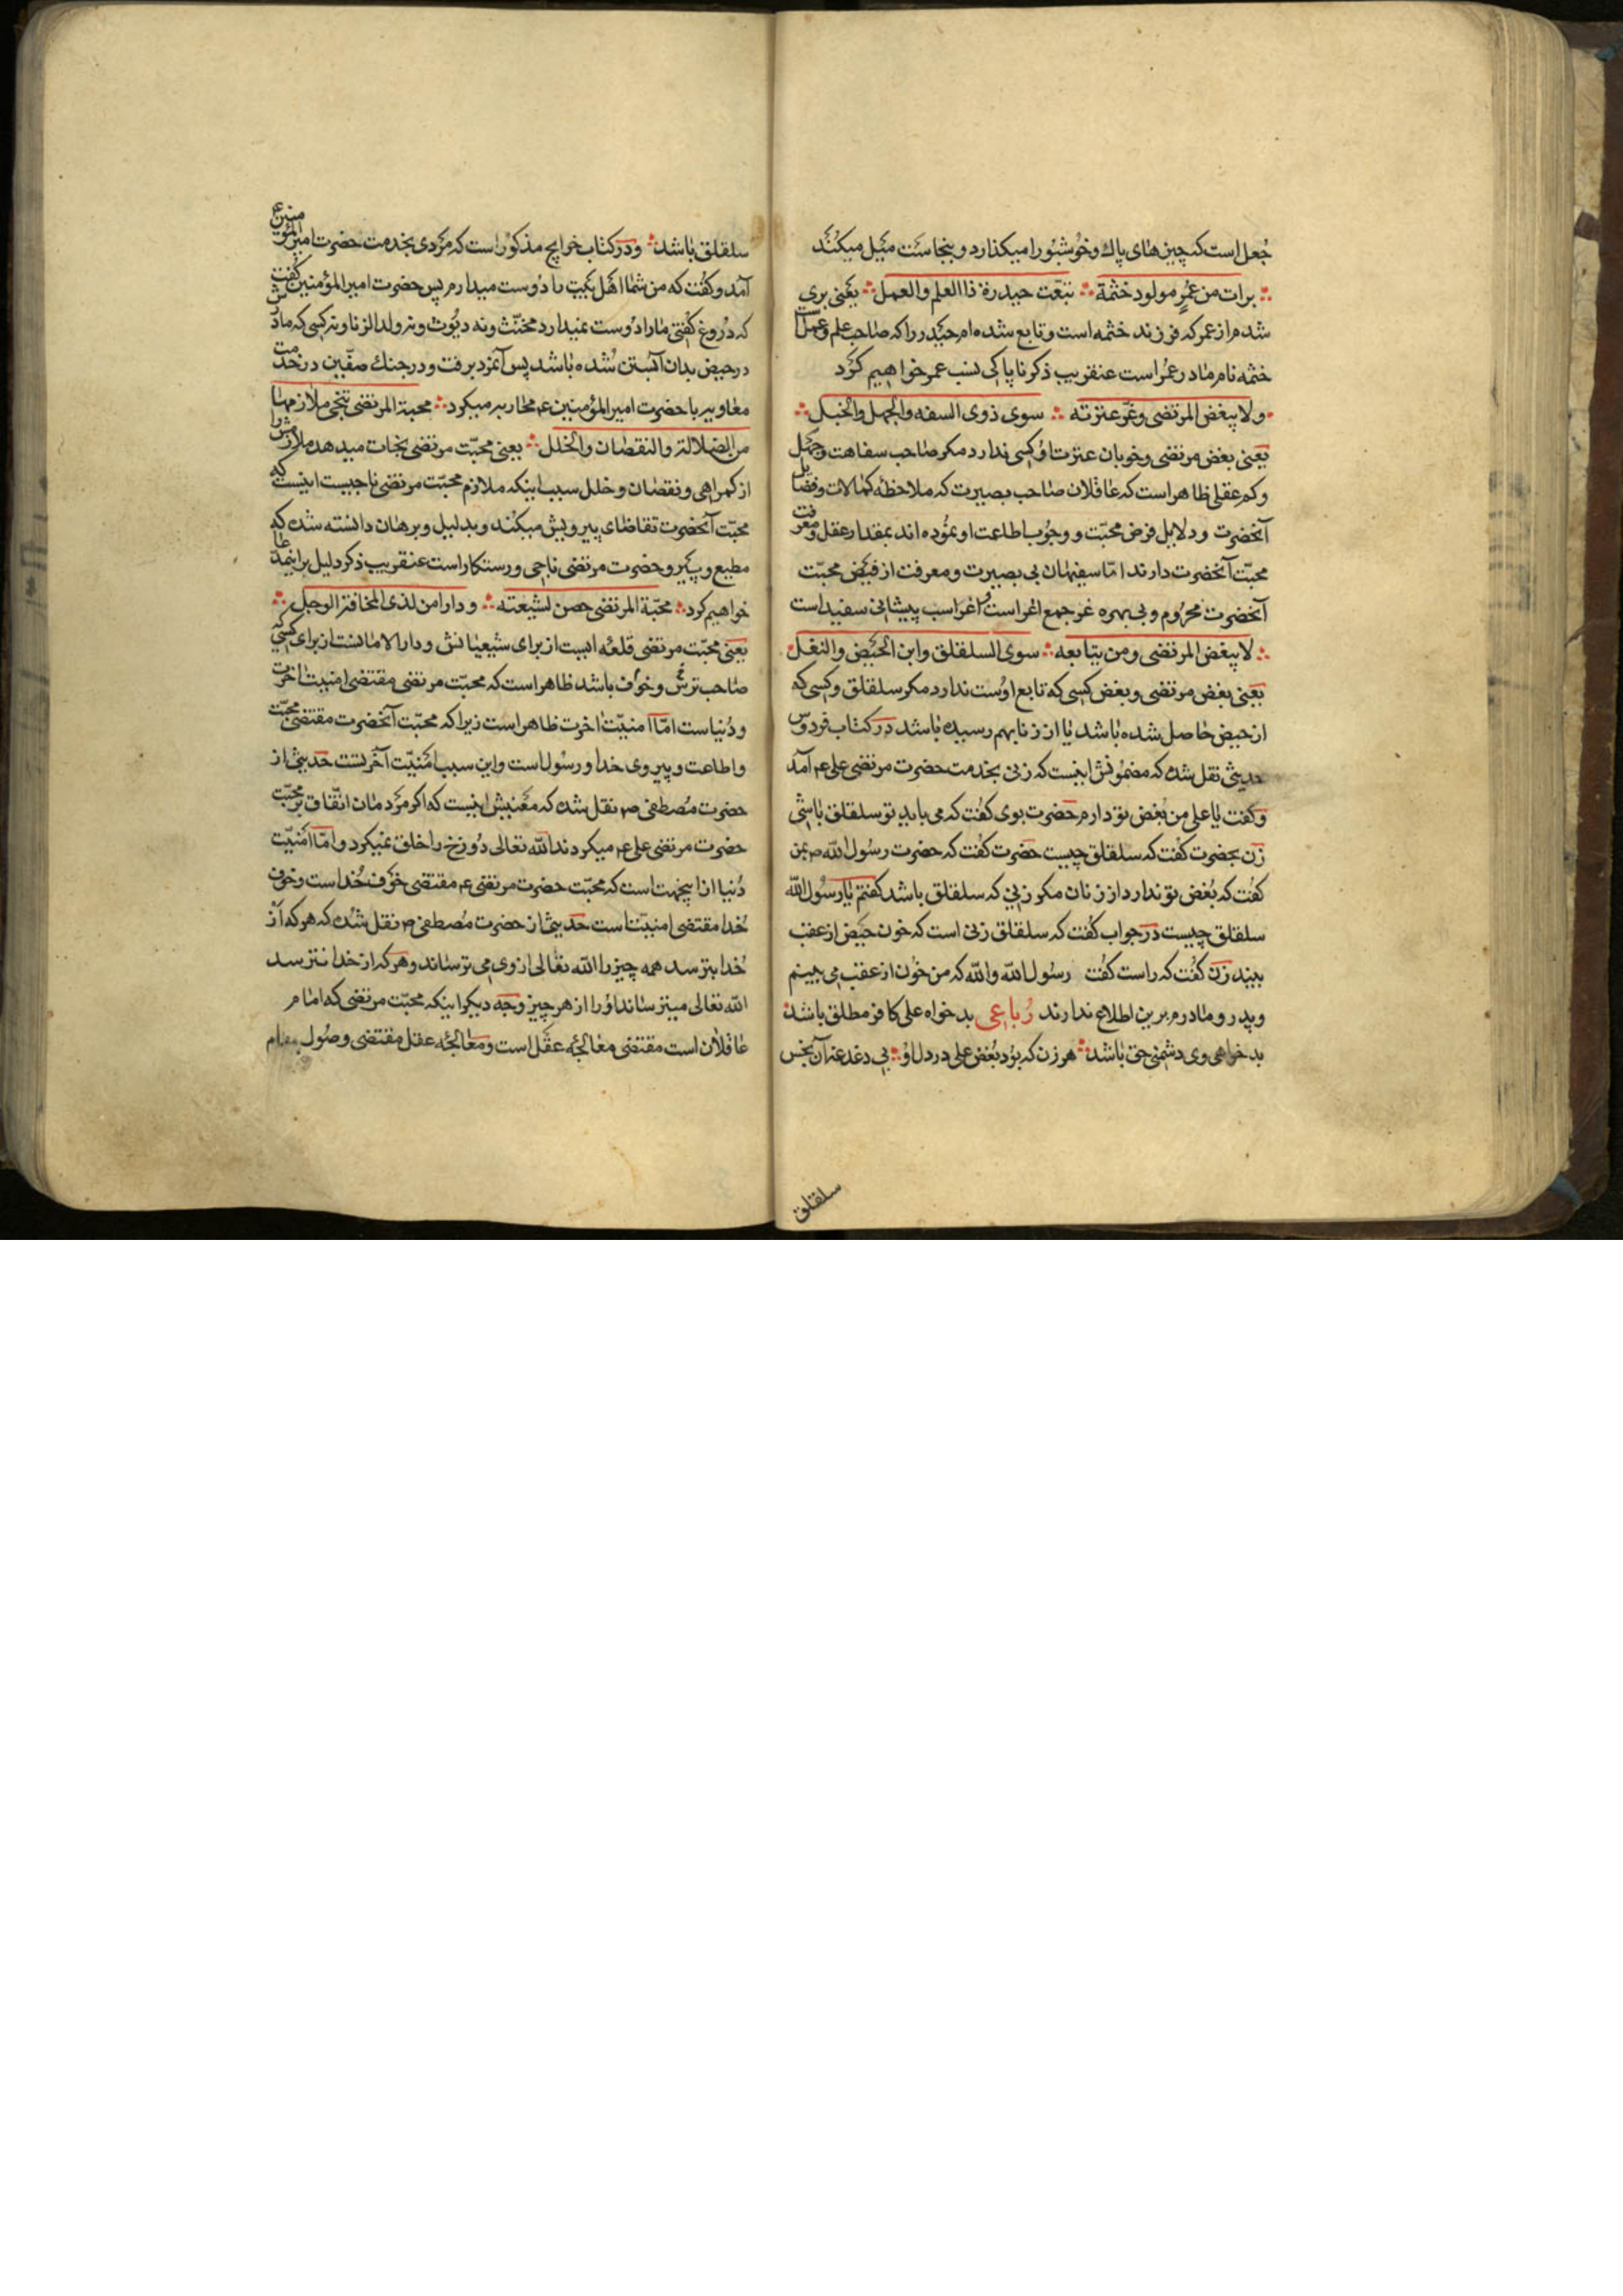 جُعل است که چیزهای پاك و خُوشبُو را میکذارد و بنجاست مَیل میکُنَد
برات من عُمرٍ مولود خثمة ∴ تبعّت حیدرة ذا العلم والعمل ∴ یَعنی بری
شدم از عمر که فرزند خثمه است و تابع شده‌ام حَیدر را که صاحب علم و عمل است
خثمه نام مادر عمُر است عنقریب ذکر ناپاکی نسب عمر خواهیم کرَد
ولا یبغض المرتضی وغرّ عترته ∴ سوی ذوی السفه والجهل والخبل ∴
یَعنی بغض مرتضی و خوبان عترت اوُ کسی ندارد مکر صاحب سفاهت و جهَل
و کم عقلی ظاهر است که عاقلان صاحب بصیرت که ملاحظه کمالات و فضایل
آنحضرت و دلایل فرض محبّت و وجُوب اطاعت او نموُده‌اند بمقدار عقل و معرفت
محبّت آنحضرت دارند امّا سفیهان بی بصیرت و معرفت از فیَض محبّت
آنحضرت محرُوم و بی بهره غر جمع اغر است و اغر اسب پیشانی سفید است
∴ لا یبغض المرتضی ومن یتابعه ∴ سوی السلقلق وابن الحَیض والنغل
یَعنی بغض مرتضی و بغض کسی که تابع اوُست ندارد مکر سلقلق و کسی که
از حیض حاصل شده باشد یا از زنا بهم رسیده باشد در کتاب فردوس
حدیثی نقل شده که مضمُونش اینست که زنی بخدمت حضرت مرتضی علی عم آمَد
و کفت یا علی من بُغض تو دارم حَضرت بوی کفُت که می باید تو سلقلق باشی
زن بحضرت کفُت که سلقلق چیست حضرت کفُت که حضرت رسُول الله ص بمن
کفُت که بُغض تو ندارد از زنان مکر زنی که سلقلق باشد کفتم یا رسُول الله
سلقلق چیست در جواب کفُت که سلقلق زنی است که خون حَیض از عقب
بیند زن کفُت که راست کفُت رسُول الله والله که من خُون از عقب می بینم
و پدر و مادرم برین اطلاع ندارند رُباعی بدخواه علی کافر مطلق باشد
بدخواهی وی دشمنی حق باشد ∴ هر زن که بوُد بُغض علی در دل اوُ ∴ بی دغدغه آن نجس
سلقلق
سلقلق باشد ∴ و در کتاب خرایج مذکوُر است که مَردی بخدمت حضرت امیر المؤمنین ع
آمَد و کفُت که من شما اهَل بَیت را دوُست میدارم پس حضرت امیر المؤمنین کفُت
که دُروغ کفُتی ما را دوُست نمیدارد مخنّث و نه دیُّوث و نه ولد الزنا و نه کسی که مادرش
در حیض بدان آبَستن شُده باشد پس آنمرَد برفت و در جنك صفّین در خدمت
معاویه با حضرت امیر المؤمنین عم محاربه میکرد ∴ محبة المرتضی تنجی ملازمها
من الضلالة والنقصان والخلل ∴ یعنی محبّت مرتضی نجات میدهد ملازمش را
از کمراهی و نقصان و خلل سبب اینکه ملازم محبّت مرتضی ناجیست اینست که
محبّت آنحضرت تقاضای پیرویش میکُند و بدلیل و برهان دانسته شده که
مطیع و پَیرو حضرت مرتضی ناجی و رستکار است عنقریب ذکر دلیل بر اینمدّعا
خواهیم کرد ∴ محبّة المرتضی حصن لشیعته ∴ و دار امن لذی المخافة الوجل ∴
یَعنی محبّت مرتضی قلعه ایست از برای شیعیانش و دار الامانست از برای کسی که
صاحب ترس و خوَف باشد ظاهر است که محبّت مرتضی مقتضی امنیت آخرت
و دُنیاست امّا امنیّت آخرت ظاهر است زیرا که محبّت آنحضرت مقتضی محبّت
و اطاعت و پیروی خدا و رسُول است و این سبب امَنیّت آخرتست حَدیثی از
حضرت مُصطفی ص نقل شده که مَعنیش اینست که اکر مَردمان اتّفاق بر محبّت
حضرت مرتضی علی عم میکردند الله تعالی دُوزخ را خلق نمیکرد و امّا امَنیّت
دُنیا از اینجهت است که محبّت حضرت مرتضی عم مقتضی خوَف خُداست و خوف
خُدا مقتضی امنیّتاست حَدیثی از حضرت مُصطفی ص نقل شده که هر که از
خُدا بترسد همه چیز را الله تعالی از وی می ترساند و هَر که از خدا نترسد
الله تعالی میترساند اوُ را از هر چیز و جه دیکر اینکه محبّت مرتضی که امام
عاقلان است مقتضی معالجه عقَل است و معالجه عقل مقتضی وصُول بمقام